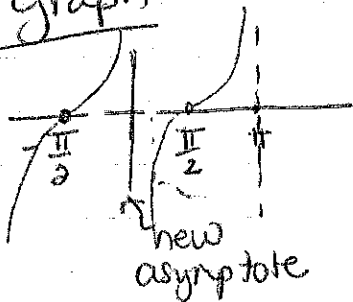 Graph
-π/2
π/2
π
new
asymptote